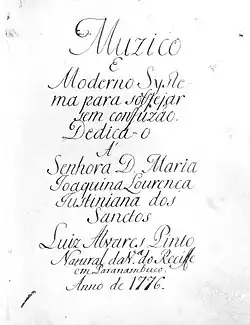 Muzico
E
Moderno Syste-
ma para solfejar
sem confuzão.
Dedica-o
A'
Senhora D. Maria
Joaquina Lourença
Justiniana dos
Santos
Luiz Alvares Pinto
Natural da V.ª do Reciffe
em Paranambuco.
Anno de 1776.